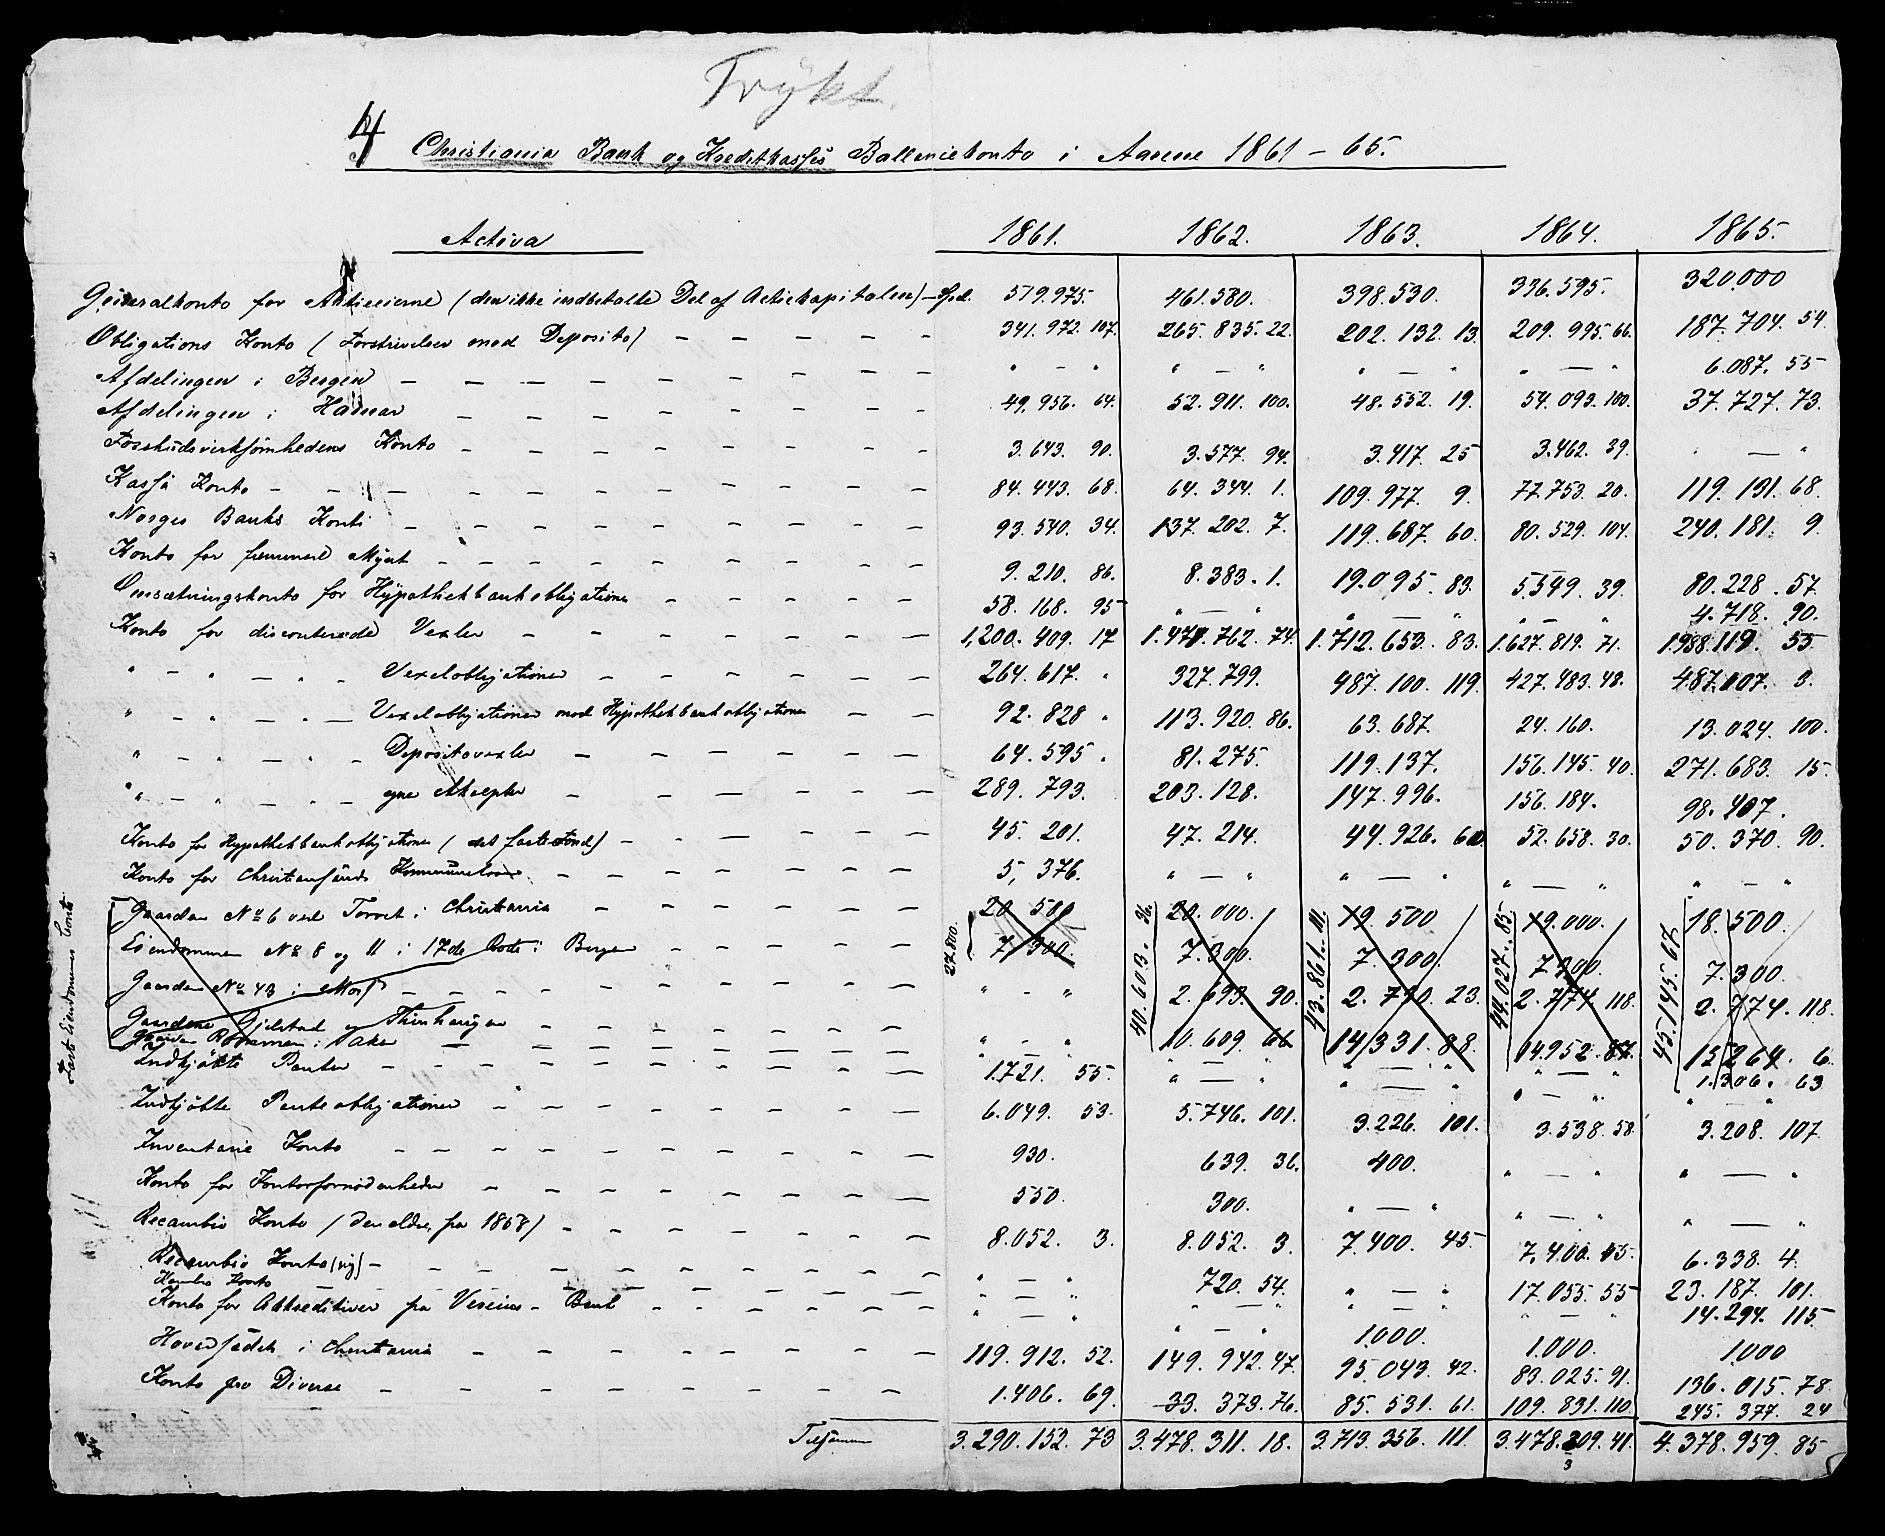 Trykt.
4
Christiania Bank og Kreditkasses Ballancekonto i Aarene 1861–65.
Activa 1861. 1862. 1863. 1864. 1865.
Generalkonto for Aktieeierne (den ikke indbetalte Del af Actiekapitalen) – Spd. 519.975. 461.580. 398.530. 336.595. 320.000
Obligations Konto (Forskrivelser mod Deposita) – – – – – 341.972.107. 265.835.22. 202.132.13. 209.995.66. 187.704.54.
Afdelingen i Bergen – – – – – – – – " – " " – " " – " " – " 6.087.55
Afdelingen i Hamar – – – – – – – 49.956.64. 52.911.100. 48.552.19. 54.093.100. 37.727.73.
Forskudsvirksomhedens Konto – – – – – – – 3.643.90. 3.577.94. 3.417.25 3.462.39. " – "
Kassa Konto – – – – – – – – – 84.443.68. 64.344.1. 109.977.9. 77.753.20. 119.131.68.
Norges Banks Konti – – – – – – – – 93.540.34. 137.202.7. 119.687.60. 80.529.104. 240.181.9.
Konto for fremmed Mynt – – – – – – – – 9.210.86. 8.383.1. 19.095.83. 5.549.39. 80.228.57.
Omsætningskonto for Hypothekbankobligationer – – – – – 58.168.95 " – " " – " " – " 4.718.90.
Konto for disconterede Vexler – – – – – – – 1,200.409.17 1.471.762.74. 1.712.653.83. 1.627.819.71. 1.938.119.55
" – " – " " Vexelobligationer – – – – – – 264.617. " 327.799. 487.100.119. 427.483.48. 487.107.3.
" – " – " – Vexelobligationer mod Hypothekbankobligationer – – 92.828 " 113.920.86. 63.687. 24.160. 13.024.100.
" – " – " – Depositovexler – – – – – – 64.595. " 81.275. 119.137. 156.145.40. 271.683.15.
" – " – " – egne Akcepter – – – – – – 289.793. 203.128. 147.996. 156.184. 98.407.
Konto for Hypothekbankobligationer (det faste Fond) – – – – – 45.201. 47.214. 44.926.60. 52.658.30. 50.370.90.
Konto for Christiansunds Kommunelaan – – – – – – 5,376. " – " " – " " – " " – "
Fast Eiendomens Conto
Gaarden No 6 ved Torvet i Christiania – – – – – – 20.500 20.000. 19.500 19.000. 18.500.
Eiendommen No 8 og 11 i 17de Rode i Bergen – – – – 7.300. 7.300. 7.300. 7.300. 7.300
27.800. 40.603.36. 43.861.111. 44.027.85. 45.145.67
Gaarden No 43 i Moss – – – – – – – – " – " 2.693.90. 2.790.23. 2.774.118. 2.774.118.
Gaardene Gjelstad og – – – – – – " – " 10.609.66 14.331.88. 14.952.87. 15.264.6.
Gaarden i Aker – – – – – – – " – " " – " " – " " – " 1.306.63
Indkjøbte Panter – – – – – – – – 1.721.55. " – " " – " " – " " – "
Indkjøbte Panteobligationer – – – – – – – 6.049.53. 5.746.101. 3.226.101. 3.538.58. 3.208.107.
Inventarie Konto – – – – – – – – 930. 639.36. 400. " – " " – "
Konto for Kontorfornødenheder – – – – – – – 550. 300. " – " " – " " – "
Recambio Konto (den ældre fra 1858) – – – – – – – 8.052.3. 8.052.3. 7.400.45. 7.400.45. 6.338.4.
Recambio Konto (ny) – – – – – – – – " – " 720.54. " – " 17.055.55 23.187.101.
Hambro Konto – – – – – " – " " – " " – " " – " 14.294.115
Konto for Akkreditiver fra Vereins-Bank – – – – – " – " " – " 1000. 1.000. 1000
Hovedsædet i Christiania – – – – – – – 119.912.52. 149.942.47. 95.043.42. 83.025.91. 136.015.78
Konto pro Diverse – – – – – – – – 1.406.69. 33.373.76. 85.531.61. 109.831.110. 245.377.24
Tilsammen 3.290.152.73 3.478.311.18. 3.713.356.111 3.478.309.41. 4.378.959.85
3